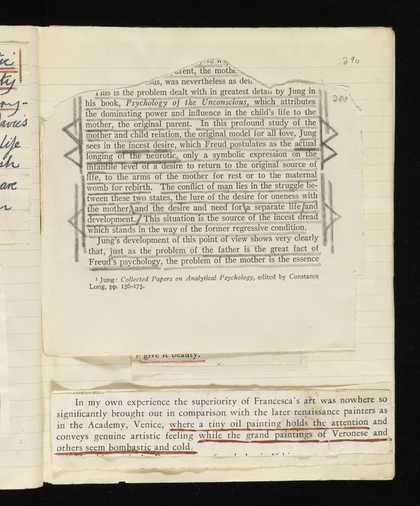 ic
ty
290
erent, the moth
sis, was nevertheless as
This is the problem dealt with in greatest detail by Jung in
his book, Psychology of the Unconscious, which attributes
the dominating power and influence in the child's life to the
mother, the original parent. In this profound study of the
mother and child relation, the original model for all love, Jung
sees in the incest desire, which Freud postulates as the actual
longing of the neurotic, only a symbolic expression on the
infantile level of a desire to return to the original source of
life, to the arms of the mother for rest or to the maternal
womb for rebirth. The conflict of man lies in the struggle be-
tween these two states, the lure of the desire for oneness with
the mother, and the desire and need for a separate life and
development. This situation is the source of the incest dread
which stands in the way of the former regressive condition.
Jung's development of this point of view shows very clearly
that, just as the problem of the father is the great fact of
Freud's psychology, the problem of the mother is the essence
¹ Jung: Collected Papers on Analytical Psychology, edited by Constance
Long, pp. 156-175.
give it beauty.
In my own experience the superiority of Francesca's art was nowhere so
significantly brought out in comparison with the later renaissance painters as
in the Academy, Venice, where a tiny oil painting holds the attention and
conveys genuine artistic feeling while the grand paintings of Veronese and
others seem bombastic and cold.